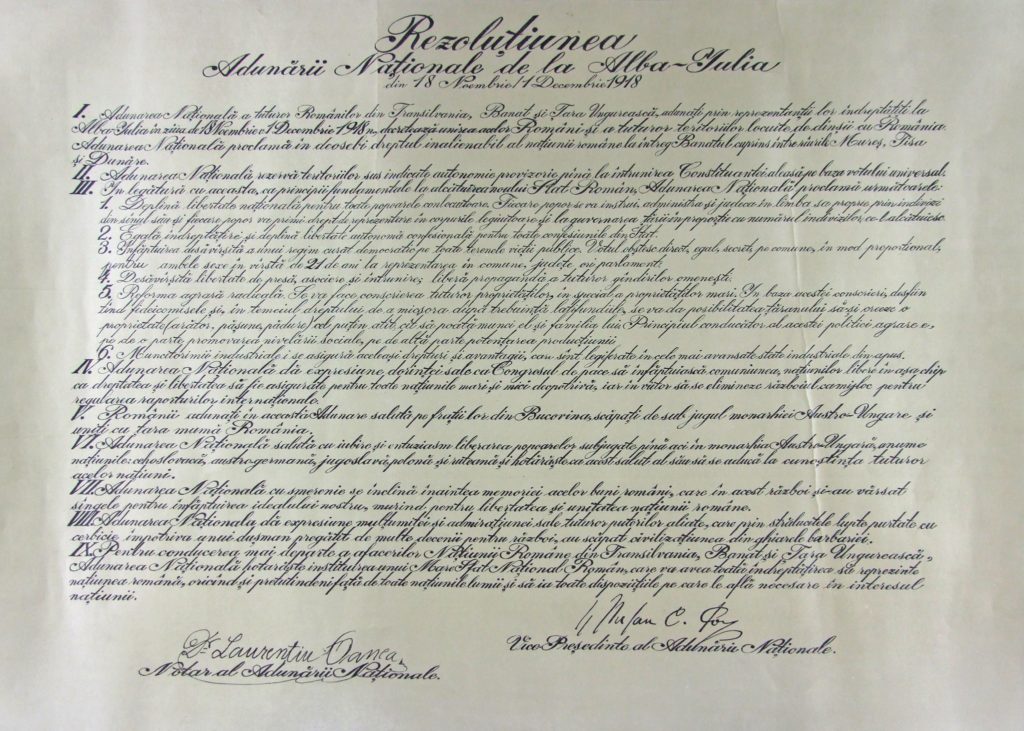 Rezoluțiunea
Adunării Naționale de la Alba-Iulia
din 18 Noembrie/1 Decembrie 1918
I. Adunarea Națională a tuturor Românilor din Transilvania, Banat și Țara Ungurească, adunați prin reprezentanții lor îndreptățiți la
Alba-Iulia în ziua de 18 Noembrie/1 Decembrie 1918, decretează unirea acelor Români și a tuturor teritoriilor locuite de dînșii cu România.
Adunarea Națională proclamă îndeosebi dreptul inalienabil al națiunii române la întreg Banatul cuprins între rîurile Mureș, Tisa
și Dunăre.
II. Adunarea Națională rezervă teritoriilor sus indicate autonomie provizorie pînă la întrunirea Constituantei aleasă pe baza votului universal.
III. În legătură cu aceasta, ca principii fundamentale la alcătuirea noului Stat Român, Adunarea Națională proclamă următoarele:
1. Deplină libertate națională pentru toate popoarele conlocuitoare. Fiecare popor se va instrui, administra și judeca în limba sa proprie prin indivizi
din sînul său și fiecare popor va primi drept de reprezentare în corpurile legiuitoare și la guvernarea țării în proporție cu numărul indivizilor ce-l alcătuiesc.
2. Egală îndreptățire și deplină libertate autonomă confesională pentru toate confesiunile din Stat.
3. Înfăptuirea desăvîrșită a unui regim curat democratic pe toate terenele vieții publice. Votul obștesc, direct, egal, secret, pe comune, în mod proporțional,
pentru ambele sexe în vîrstă de 21 de ani la reprezentarea în comune, județe ori parlament;
4. Desăvîrșită libertate de presă, asociere și întrunire; liberă propagandă a tuturor gîndurilor omenești;
5. Reforma agrară radicală. Se va face conscrierea tuturor proprietăților, în special a proprietăților mari. În baza acestei conscrieri, desființ
înd fideicomisele și, în temeiul dreptului de a micșora după trebuință latifundiile, se va da posibilitatea țăranului să-și creeze o
proprietate (arător, pășune, pădure) cel puțin atît cît să poată munci el și familia lui; Principiul conducător al acestei politici agrare e,
pe de o parte promovarea nivelării sociale, pe de altă parte potențarea producțiunii
6. Muncitorimii industriale i se asigură aceleași drepturi și avantagii, care sînt legiferate în cele mai avansate state industriale din apus.
IV. Adunarea Națională dă expresiune dorinței sale ca Congresul de pace să înfăptuiască comuniunea, națiunilor libere în așa chip
ca dreptatea și libertatea să fie asigurate pentru toate națiunile mari și mici deopotrivă, iar în viitor să se elimineze războiul ca mijloc pentru
regularea raporturilor internaționale.
V. Românii adunați în această Adunare salută pe frații lor din Bucovina, scăpați de sub jugul monarhiei Austro-Ungare și
uniți cu țara mumă România.
VI. Adunarea Națională salută cu iubire și entuziasm liberarea popoarelor subjugate pînă aci în monarhia Austro-Ungară, anume
națiunile: cehoslovacă, austrogermană, jugoslavă, polonă și ruteană și hotărăște ca acest salut al său să se aducă la cunoștința tuturor
acelor națiuni.
VII. Adunarea Națională cu smerenie se înclină înaintea memoriei acelor buni români, care în acest război și-au vărsat
sîngele pentru înfăptuirea idealului nostru, murind pentru libertatea și unitatea națiunii române.
VIII. Adunarea Națională dă expresiune mulțumitei și admirațiunei sale tuturor puterilor aliate, care prin strălucitele lupte purtate cu
cerbicie împotriva unui dușman pregătit de multe decenii pentru război, au scăpat civilizațiunea din ghiarele barbariei.
IX. Pentru conducerea mai departe a afacerilor Națiunii Române din Transilvania, Banat și Țara Ungurească,
Adunarea Națională hotărăște instituirea unui Mare Sfat Național Român, care va avea toată îndreptățirea să reprezinte
națiunea română, oricînd și pretutindeni față de toate națiunile lumii și să ia toate dispozițiile pe care le află necesare în interesul
națiunii.
Dr Laurențiu Oanea,
Notar al Adunării Naționale.
Vice Președinte al Adunării Naționale.